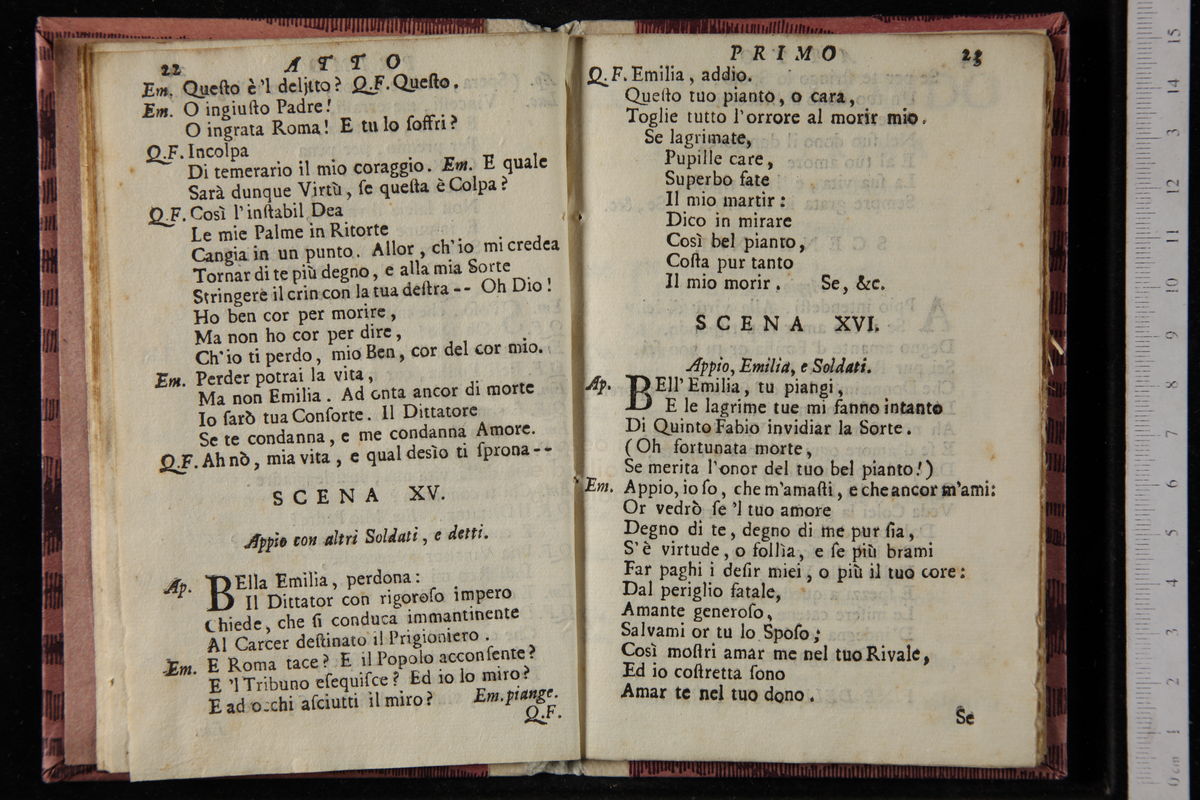 22 ATTO
Em. Queſto è 'l delitto? Q.F. Queſto.
Em. O ingiuſto Padre!
O ingrata Roma! E tu lo ſoffri?
Q.F. Incolpa
Di temerario il mio coraggio. Em. E quale
Sarà dunque Virtù, ſe queſta è Colpa?
Q.F. Così l'inſtabil Dea
Le mie Palme in Ritorte
Cangia in un punto. Allor, ch'io mi credea
Tornar di te più degno, e alla mia Sorte
Stringere il crin con la tua deſtra -- Oh Dio!
Ho ben cor per morire,
Ma non ho cor per dire,
Ch'io ti perdo, mio Ben, cor del cor mio.
Em. Perder potrai la vita,
Ma non Emilia. Ad onta ancor di morte
Io ſarò tua Conſorte. Il Dittatore
Se te condanna, e me condanna Amore.
Q.F. Ah nò, mia vita, e qual desìo ti ſprona --
SCENA XV.
Appio con altri Soldati, e detti.
Ap. BElla Emilia, perdona:
Il Dittator con rigoroſo impero
Chiede, che ſi conduca immantinente
Al Carcer deſtinato il Prigioniero.
Em. E Roma tace? E il Popolo acconſente?
E 'l Tribuno eſequiſce? Ed io lo miro?
E ad occhi aſciutti il miro? Em. piange.
Q.F.
PRIMO 23
Q.F. Emilia, addio.
Queſto tuo pianto, o cara,
Toglie tutto l'orrore al morir mio.
Se lagrimate,
Pupille care,
Superbo fate
Il mio martir:
Dico in mirare
Così bel pianto,
Coſta pur tanto
Il mio morir. Se, &c.
SCENA XVI.
Appio, Emilia, e Soldati.
Ap. BEll' Emilia, tu piangi,
E le lagrime tue mi fanno intanto
Di Quinto Fabio invidiar la Sorte.
(Oh fortunata morte,
Se merita l'onor del tuo bel pianto!)
Em. Appio, io ſo, che m'amaſti, e che ancor m'ami:
Or vedrò ſe 'l tuo amore
Degno di te, degno di me pur ſia,
S'è virtude, o follìa, e ſe più brami
Far paghi i deſir miei, o più il tuo core:
Dal periglio fatale,
Amante generoſo,
Salvami or tu lo Spoſo;
Così moſtri amar me nel tuo Rivale,
Ed io coſtretta ſono
Amar te nel tuo dono.
Se
15
14
13
12
11
10
9
8
7
6
5
4
3
2
1
0 cm